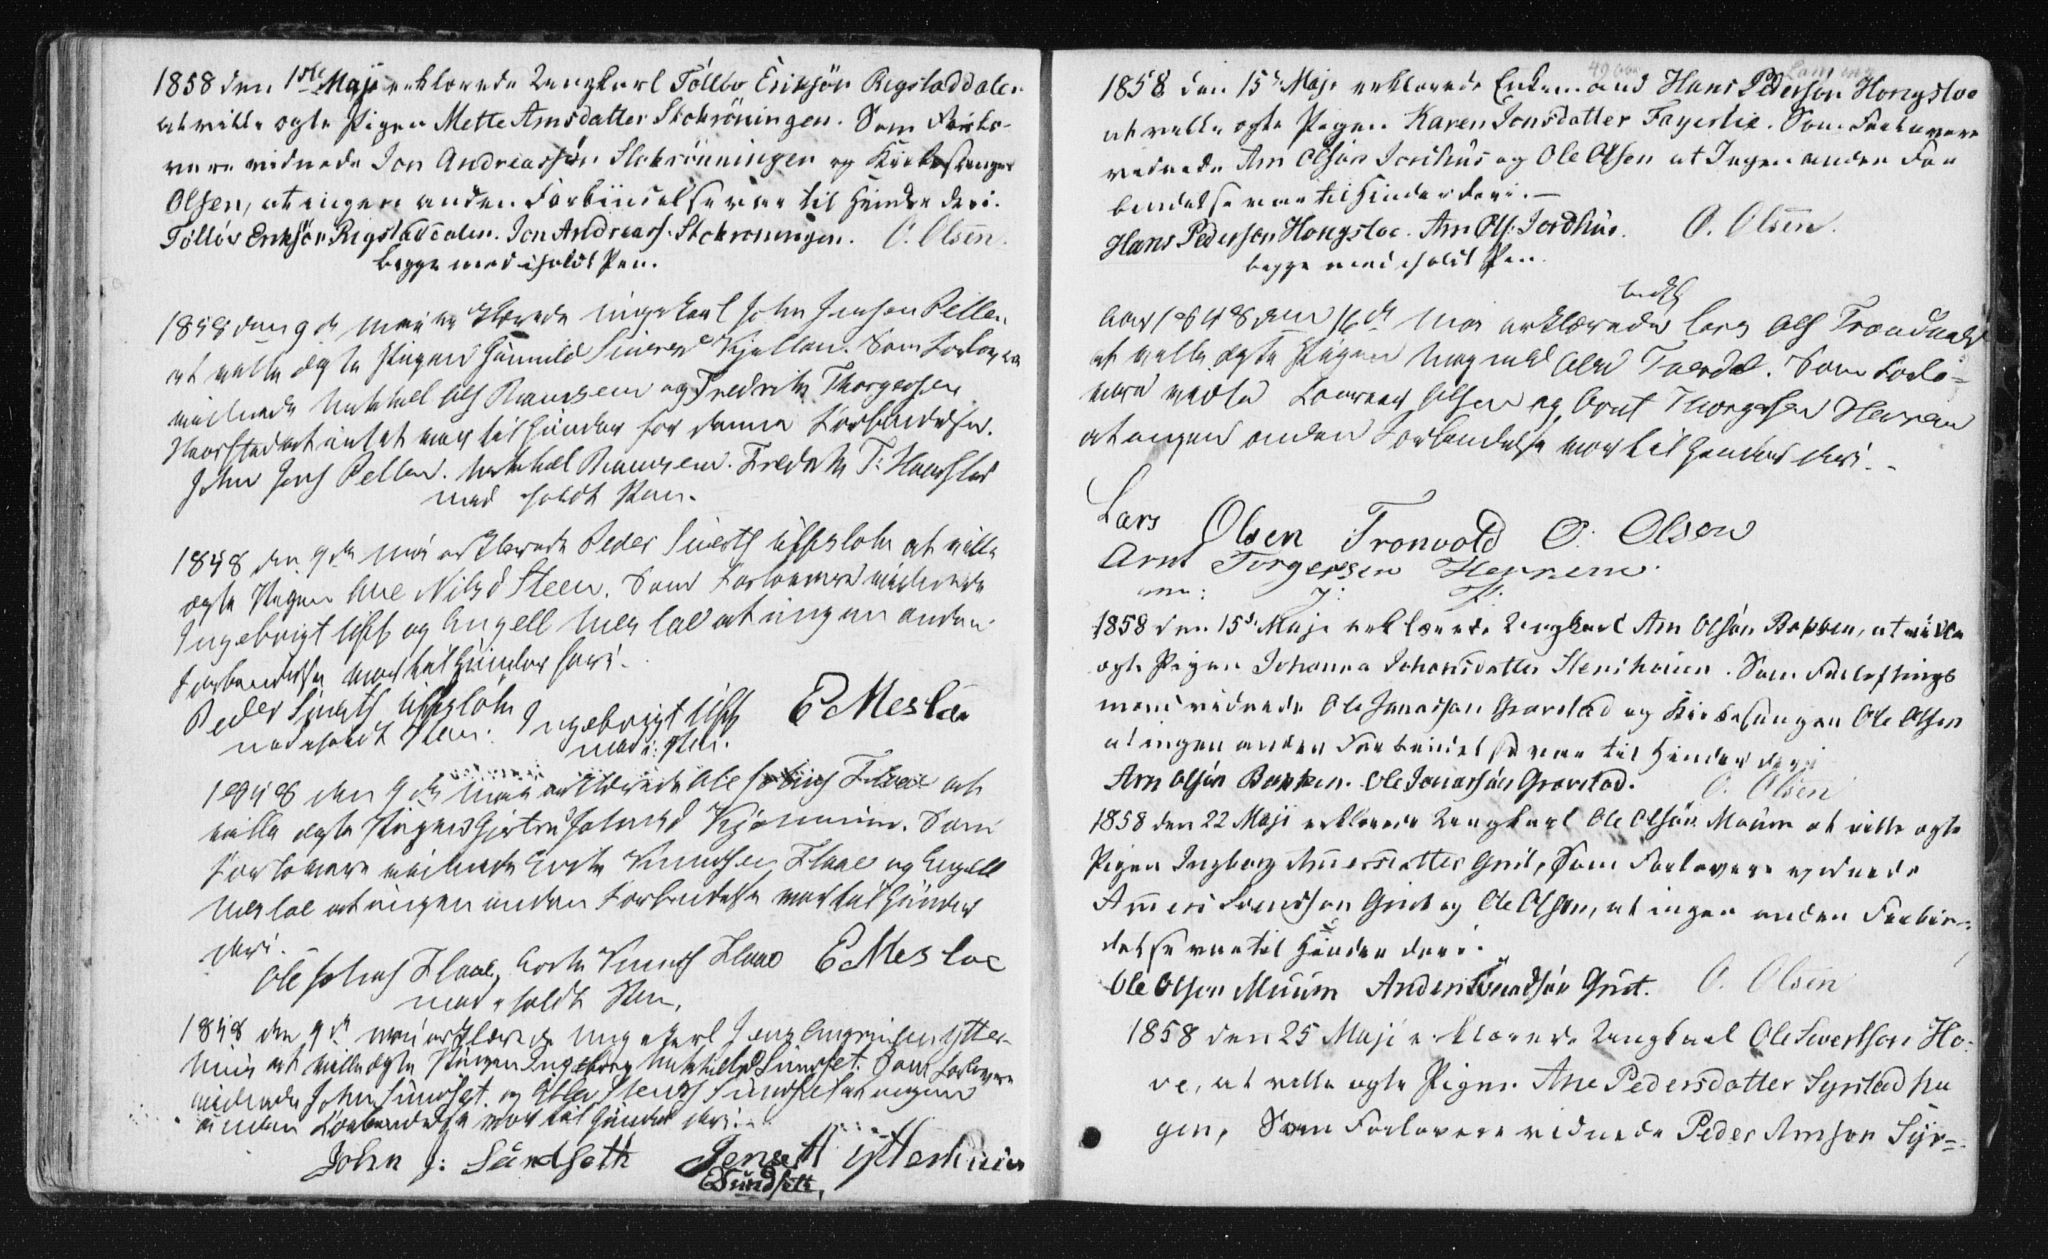 1858 den 1ste Maji erklærede Ungkarl Tölløv Eriksön Rigstaddalen
at ville ægte Pigen Mette Arnsdatter Stokröningen. Som Forlo-
vere vidnede Jon Andreassön Stokrönningen og Kirkesanger
Olsen, at ingen anden Forbindelse var til Hinder deri.
Tölløv Eriksön Rigstaddalen. Jon Andreass. Stokroningen. O. Olsen.
begge med iholdt Pen.
1858 den 9de mai erklærede ungekarl John Jensen Pellen
at ville ægte Pigen Gunnild Siversd Kjellen. Som Forlovere
vidnede Mekkel Ols Ramsem og Fredrik Thorgersen
Haarstad at intet var til Hinder for denne Forbindelse.
John Jens Pellen. Mekkel Ramsem. Fredrik T: Haarstad
med iholdt Pen.
1858 den 9de mai erklærede Peder Siverts at ville
ægte Pigen Ane Nilsd Steen. Som Forlovere vidnede
Ingebrigt og Engell Mesloe at ingen anden
Forbindelse var til Hinder deri.
Peder Siverts Ingebrigt E Meslöe
med iholdt Pen. med i: Pen.
1858 den 9de mai erklærede Ole Flaae at
ville ægte Pigen Gjertru Kjönnum. Som
Forlovere vidnede Knudsen Flaae og Engell
Mesloe at ingen anden Forbindelse var til Hinder
deri.
Ole Flaae, Knuds Flaae E Mesloe
med iholdt Pen.
1858 den 9de mai erklærede ungekarl Jens Ytter-
huus at ville ægte Pigen Ingeborg Mekkelsd Sundset. Som Forlovere
vidnede John Sundset og Sundset at ingen
anden Forbindelse var til Hinder deri.
John J: Sundseth Jens Ytterhuus
Sundseth,
1858 den 15de Maji erklærede Enkemand Hans Pederson Hongsloe
at ville ægte Pigen Karen Jonsdatter Fagerlie. Som Forlovere
vidnede Arn Olsön Jordhus og Ole Olsen at Ingen anden For
bindelse var til Hinder deri.—
Hans Pederson Hongsloe. Arn Ols. Jordhus. O. Olsen.
begge med iholdt Pen.
Aar 1858 den 16de Mai erklærede Lars Ols Tronvold
at ville ægte Pigen Magnild Olsd. Som Forlo=
vere vidnede Olsen og Arnt Thorgersen Herrem
at ingen anden Forbindelse var til Hinder deri.
Lars Olsen Tronvold O. Olsen
Arnt Torgersen Herrem.
m: i: P:
1858 den 15de Maji erklærede Ungkarl Arn Olsön Bakken, at ville
ægte Pigen Johanna Johansdatter Stenihaien. Som Forloftnings
mænd vidnede Ole Jonassön Gravstad og Kirkesanger Ole Olsen
at ingen anden Forbindelse var til Hinder deri
Arn Olsön Bakken. Ole Jonassön Gravstad. O. Olsen
1858 den 22 Maji erklærede Ungkarl Ole Olsön Muum at ville ægte
Pigen Ingborg Andersdatter Grut, Som Forlovere vidnede
Anders Svendson Grut og Ole Olsen, at ingen anden Forbin-
delse var til Hinder deri.
Ole Olsen Muum Anders Svendsön Grut. O. Olsen
1858 den 25 Maji erklærede Ungkarl Ole Sivertson Ho-
ve, at ville ægte Pigen Ane Pedersdatter Syrstadha
gen, Som Forlovere vidnede Peder Arnson Syr=